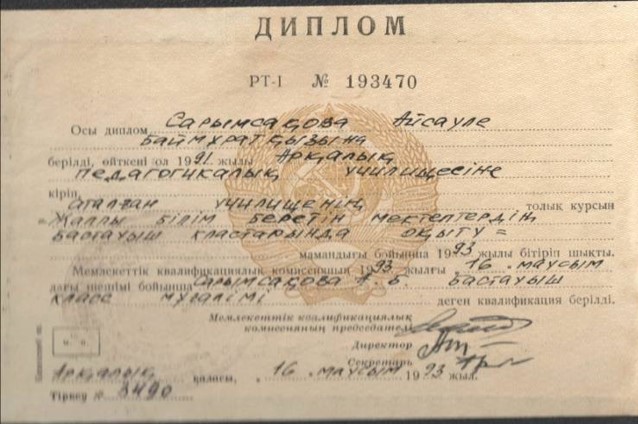 ДИПЛОМ
РТ-I № 193470
Осы диплом Сарымсақова Айсауле
Баймұратқызына
берілді, өйткені ол 1991 жылы Арқалық
педагогикалық училищесіне
кіріп,
аталған училищенің толық курсын
Жалпы білім беретін мектептердің
бастауыш кластарында оқыту =
мамандығы бойынша 1993 жылы бітіріп шықты.
Мемлекеттік квалификациялық комиссияның 1993 жылғы 16. маусым
дағы шешімі бойынша Сарымсақова А. Б. бастауыш
класс мұғалімі деген квалификация берілді.
Мемлекеттік квалификациялық
комиссияның председателі
Директор
Секретарь
Арқалық қаласы, 16. маусым 1993 жыл.
Тіркеу № 3490